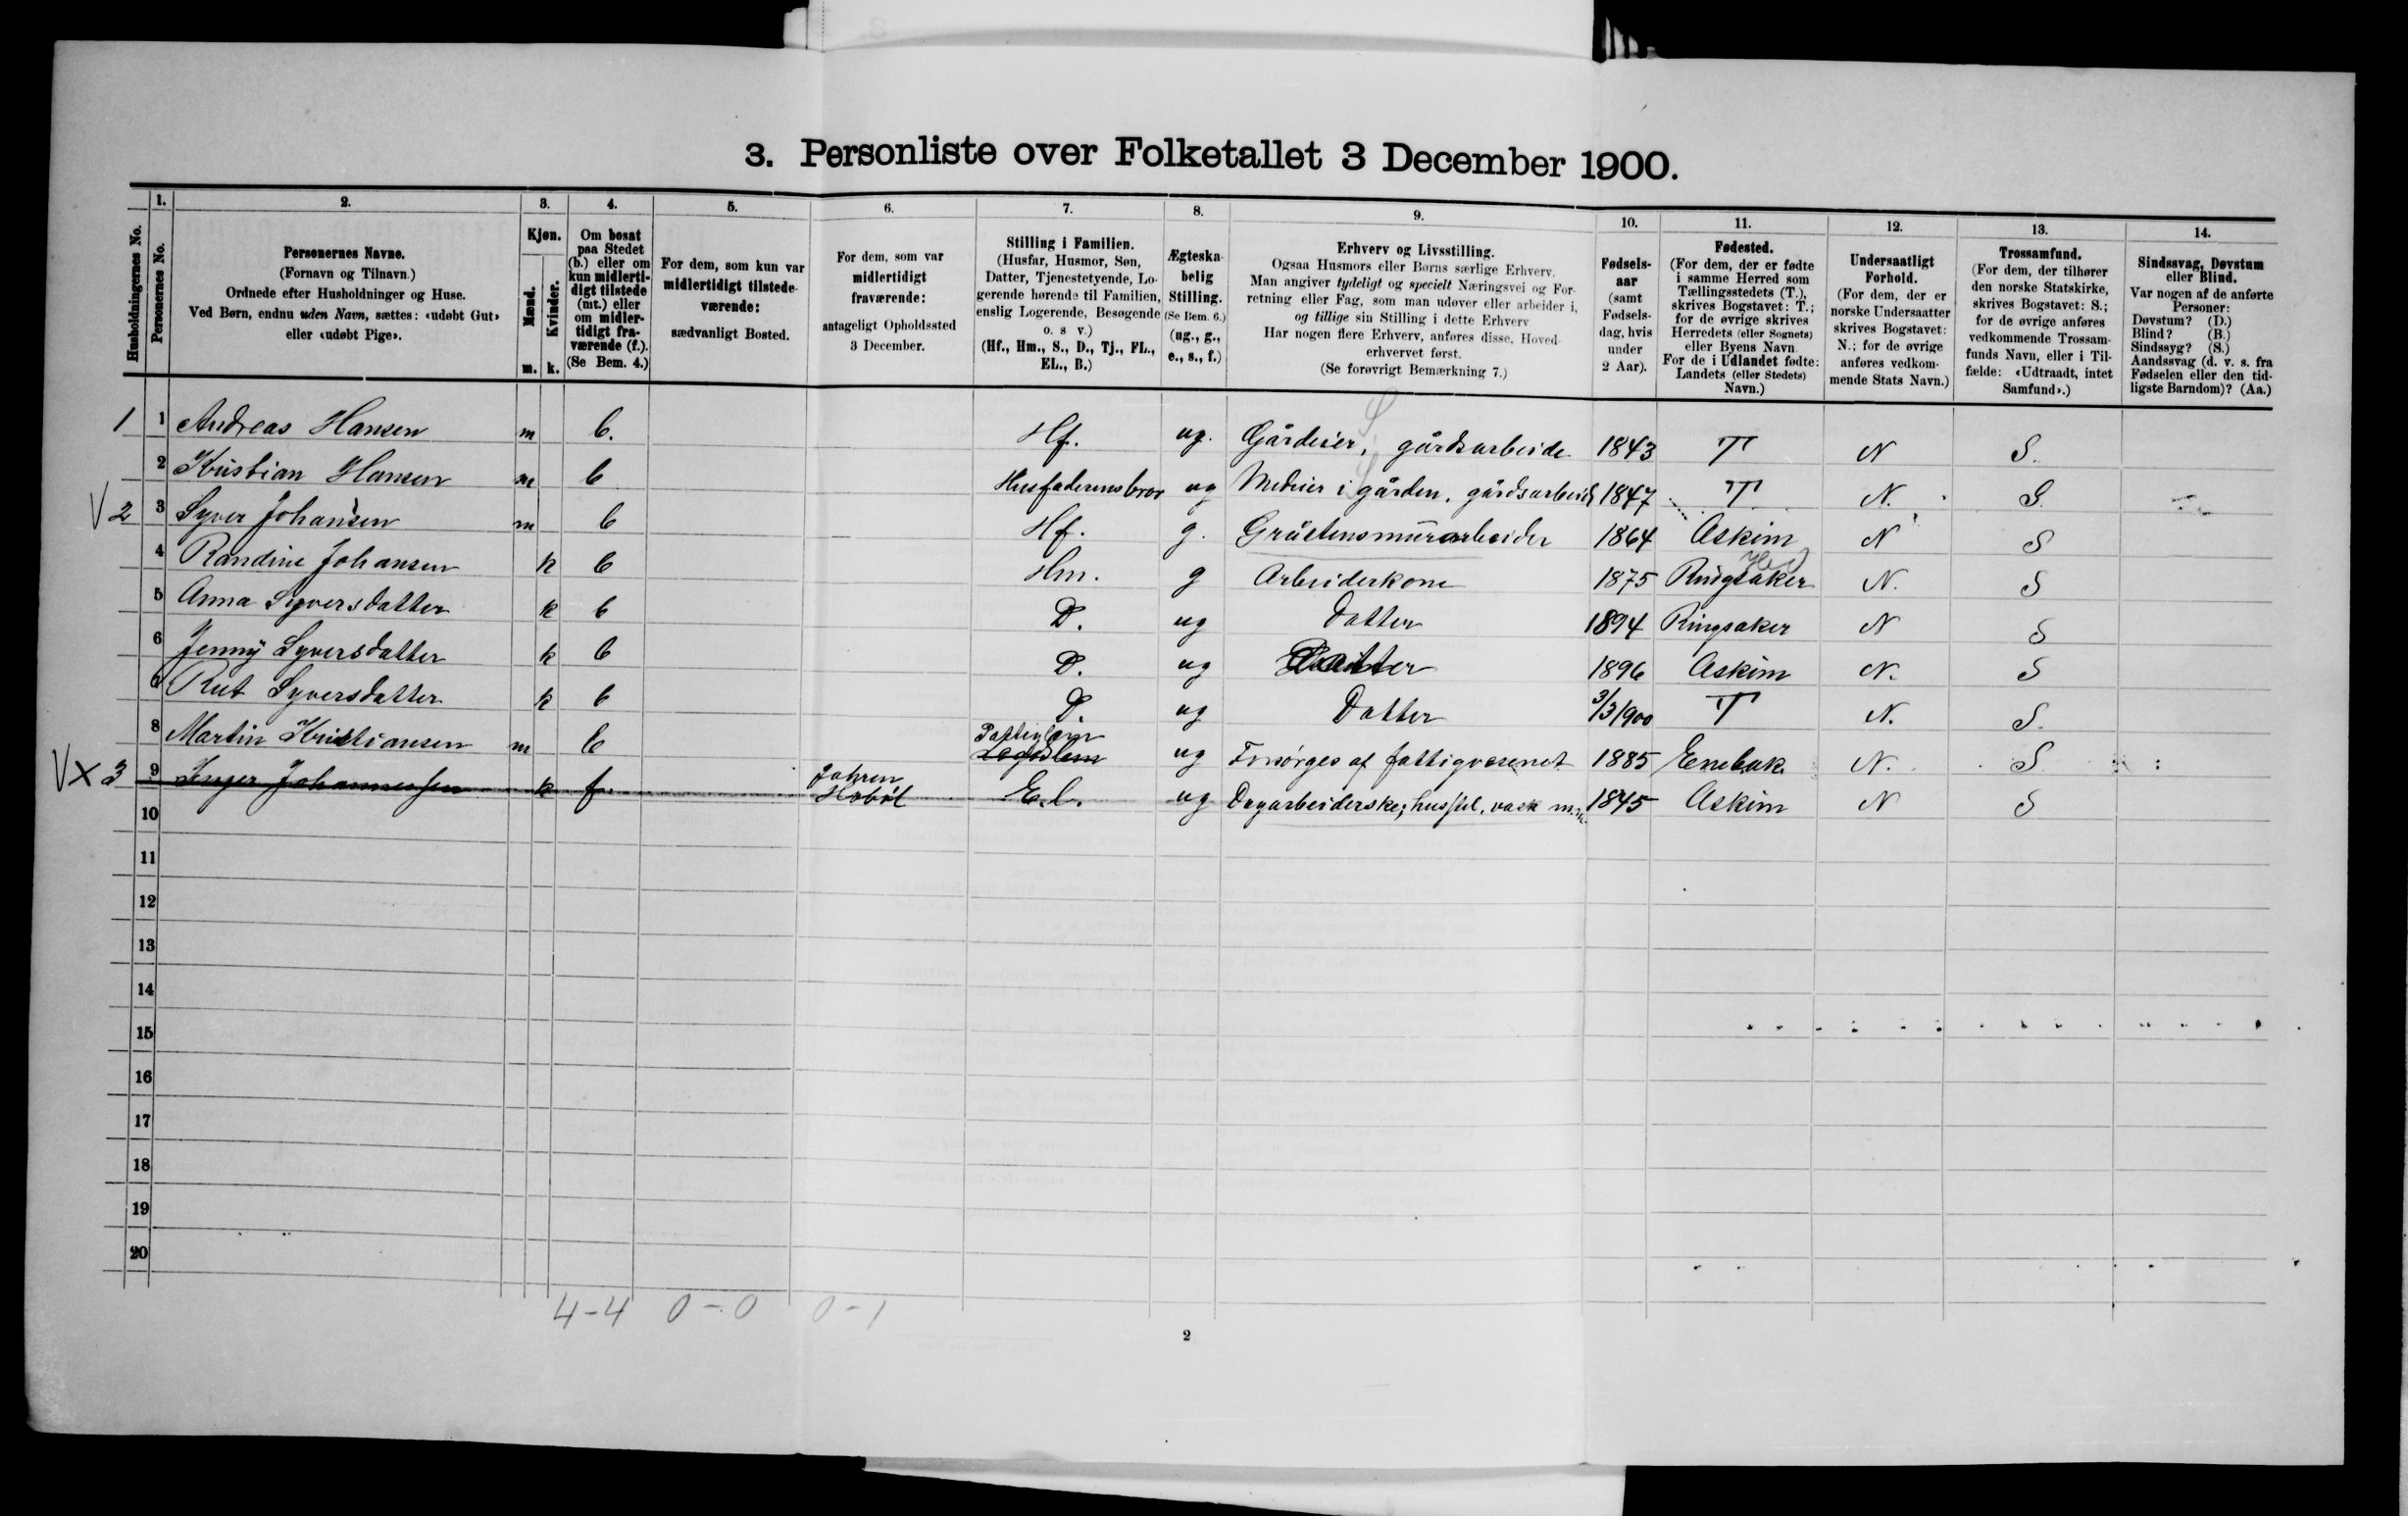 3. Personliste over Folketallet 3 December 1900.
Husholdningernes No.
1. Personernes No.
2. Personernes Navne.
(Fornavn og Tilnavn.)
Ordnede efter Husholdninger og Huse.
Ved Børn, endnu uden Navn, sættes: «udøbt Gut»
eller «udøbt Pige».
3. Kjøn.
Mænd. Kvinder.
m. k.
4. Om bosat
paa Stedet
(b.) eller om
kun midlerti-
digt tilstede
(mt.) eller
om midler-
tidigt fra-
værende (f.).
(Se Bem. 4.)
5. For dem, som kun var
midlertidigt tilstede-
værende:
sædvanligt Bosted.
6. For dem, som var
midlertidigt
fraværende:
antageligt Opholdssted
3 December.
7. Stilling i Familien.
(Husfar, Husmor, Søn,
Datter, Tjenestetyende, Lo-
gerende hørende til Familien,
enslig Logerende, Besøgende
o. s v.)
(Hf., Hm., S., D., Tj., FL.,
EL., B.)
8. Ægteska-
belig
Stilling.
(Se Bem. 6.)
(ug., g.,
e., s., f.)
9. Erhverv og Livsstilling.
Ogsaa Husmors eller Børns særlige Erhverv.
Man angiver tydeligt og specielt Næringsvei og For-
retning eller Fag, som man udøver eller arbeider i,
og tillige sin Stilling i dette Erhverv
Har nogen flere Erhverv, anføres disse, Hoved-
erhvervet først.
(Se forøvrigt Bemærkning 7.)
10. Fødsels-
aar
(samt
Fødsels-
dag, hvis
under
2 Aar).
11. Fødested.
(For dem, der er fødte
i samme Herred som
Tællingsstedets (T.),
skrives Bogstavet: T.;
for de øvrige skrives
Herredets (eller Sognets)
eller Byens Navn.
For de i Udlandet fødte:
Landets (eller Stedets)
Navn.)
12. Undersaatligt
Forhold.
(For dem, der er
norske Undersaatter
skrives Bogstavet:
N.; for de øvrige
anføres vedkom-
mende Stats Navn.)
13. Trossamfund.
(For dem, der tilhører
den norske Statskirke,
skrives Bogstavet: S.;
for de øvrige anføres
vedkommende Trossam-
funds Navn, eller i Til-
fælde: «Udtraadt, intet
Samfund».)
14. Sindssvag, Døvstum
eller Blind.
Var nogen af de anførte
Personer:
Døvstum? (D.)
Blind? (B.)
Sindssyg? (S.)
Aandssvag (d. v. s. fra
Fødselen eller den tid-
ligste Barndom)? (Aa.)
1 1 Andreas Hansen m b. Hf. ug. Gårdeier, gårdsarbeide 1843 T N S.
2 Kristian Hansen m b Husfaderens bror ug Medeier i gården, gårdsarbeid 1847 T N. S
V 2 3 Syver Johansen m b Hf. g. Gråstensmurarbeider 1864 Askim N S
4 Randine Johansen k b Hm. g Arbeiderkone 1875 Ringsaker N. S
5 Anna Syversdatter k b D. ug Datter 1894 Ringsaker N S
6 Jenny Syversdatter k b D. ug Datter 1896 Askim N. S
7 Rut Syversdatter k b D. ug Datter 3/3 1900 T N. S.
8 Martin Kristiansen m b ug Forsørges af fattigvæsenet 1885 Enebak N. S
V x 3 9 Inger Johannessen k f. Jahren Hobøl E.l. ug Dagarbeiderske; husstel, vask m.m. 1845 Askim N S
10
11
12
13
14
15
16
17
18
19
20
4-4 0-0 0-1
2